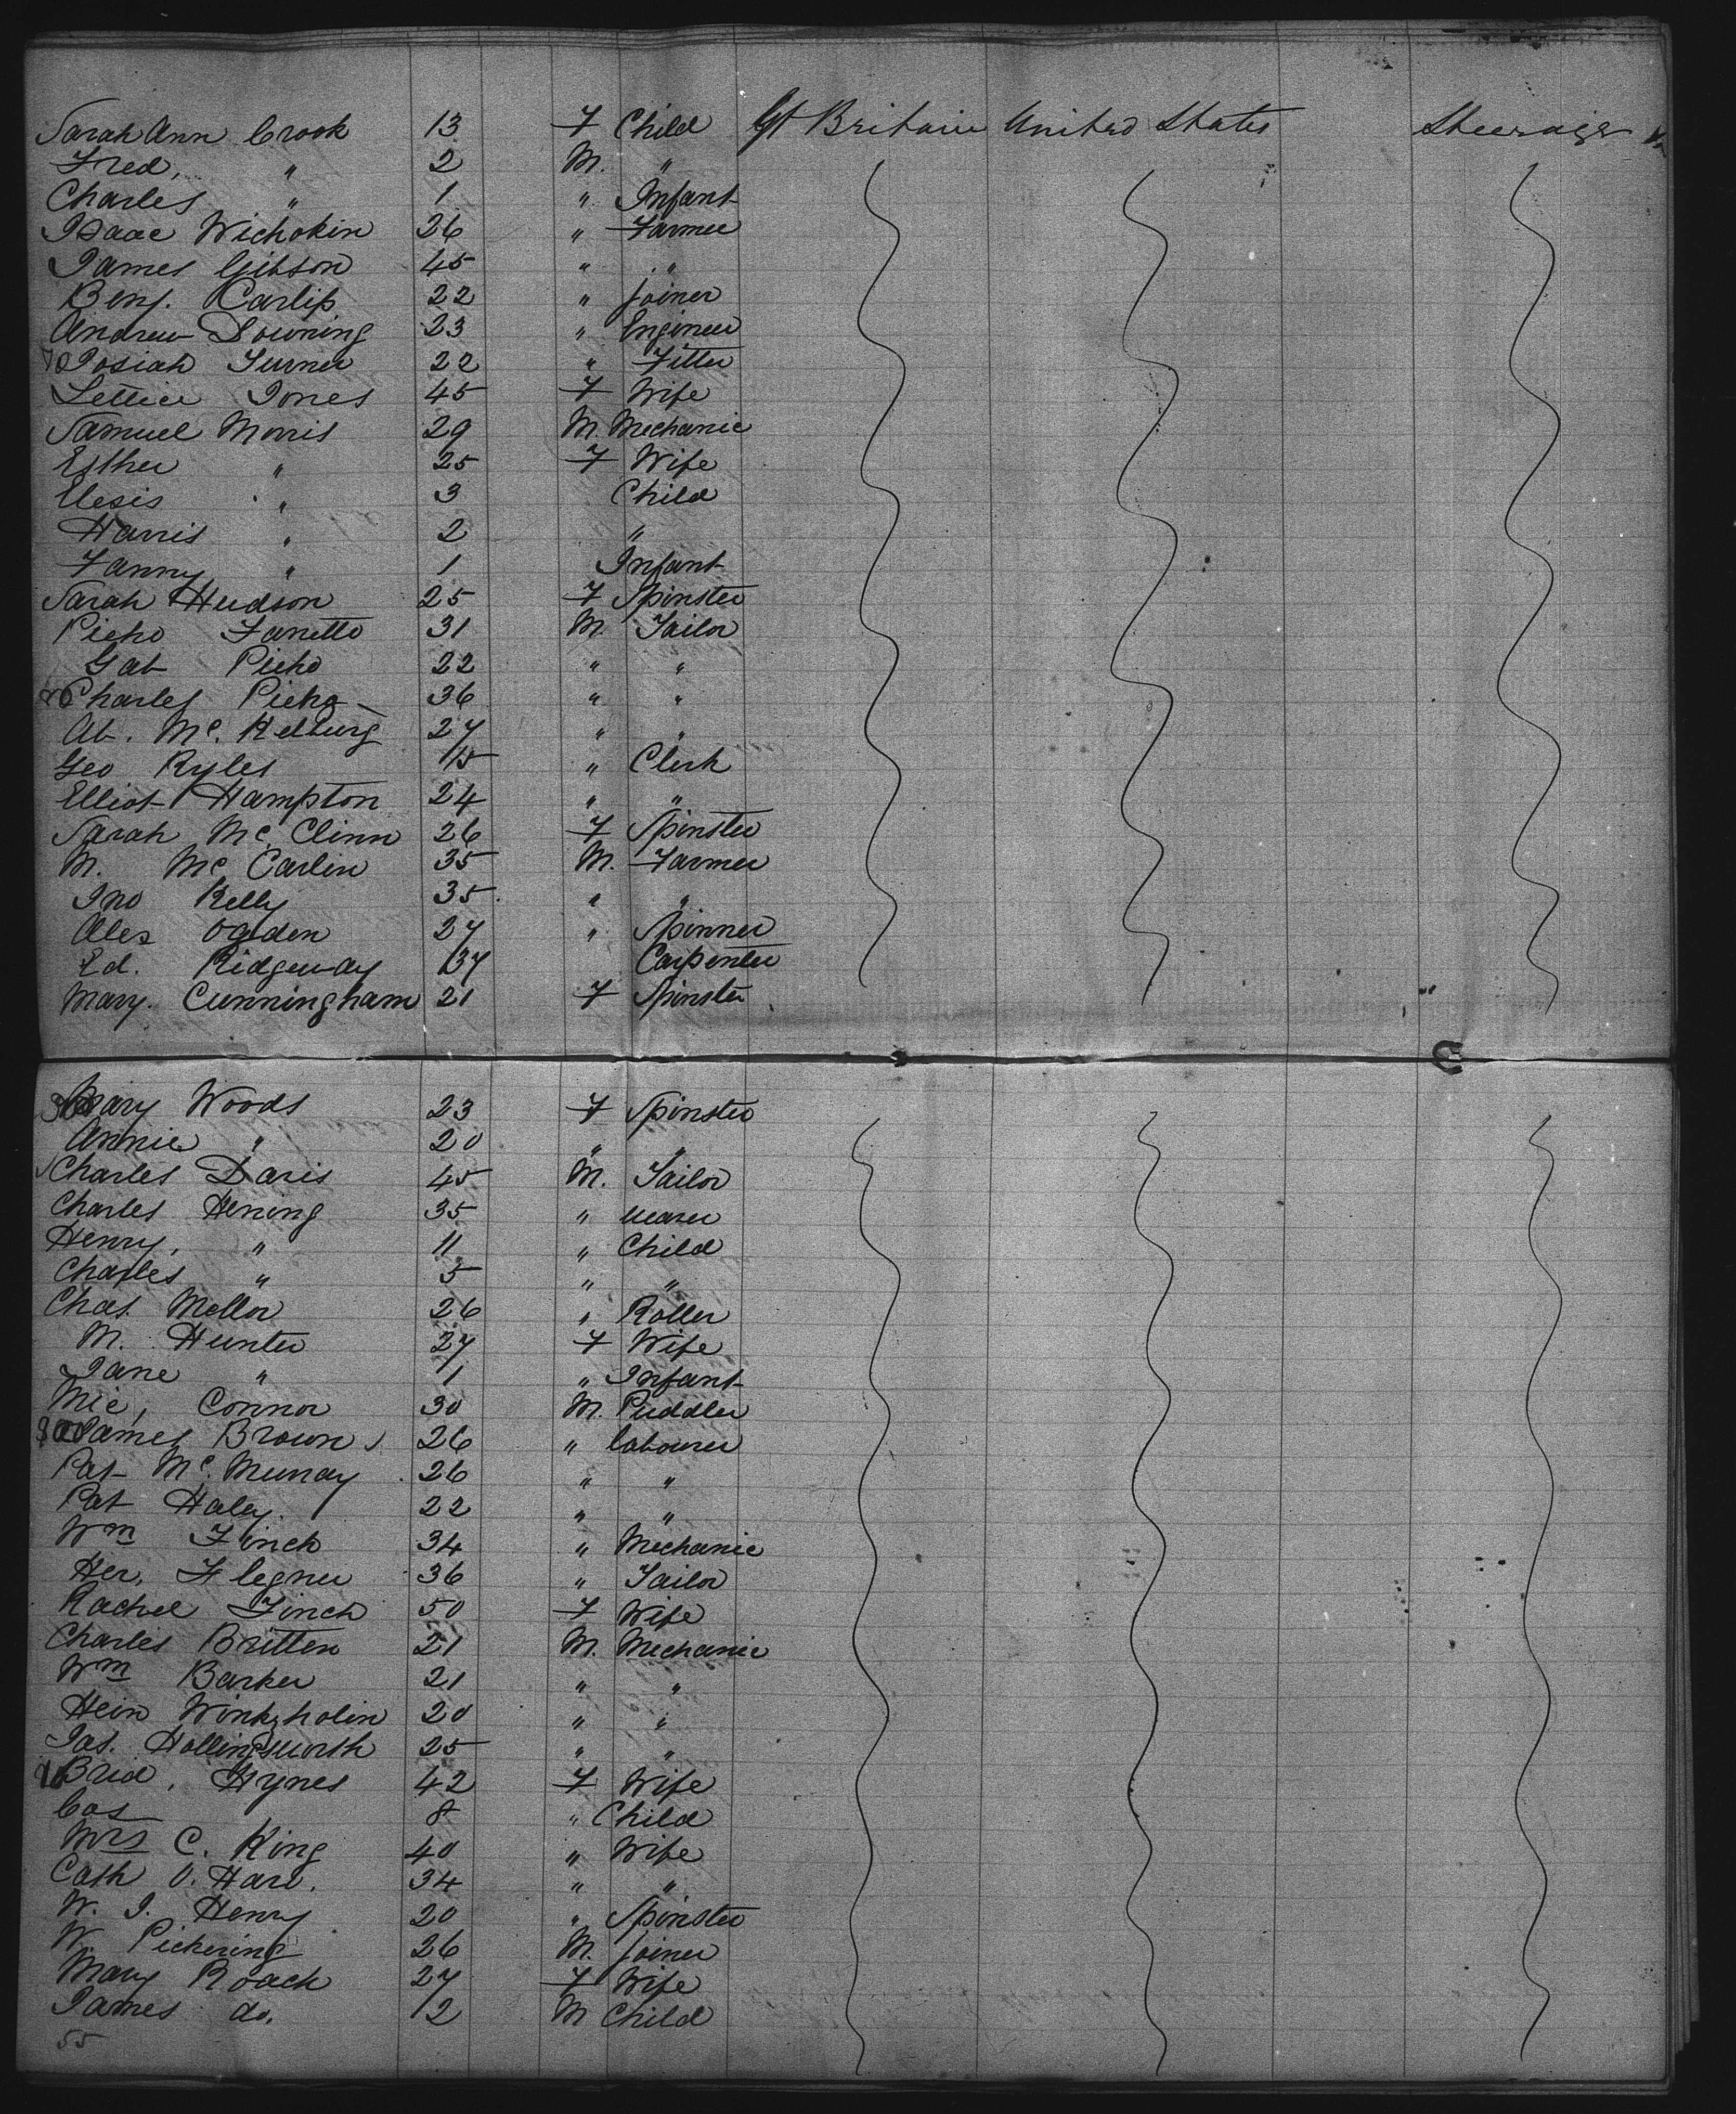 Sarah Ann Crook 13 F Child Gt Britain United States Steerage
Fred, " 2 M. "
Charles " 1 " Infant
Isaac Wichokin 26 " Farmer
James Gibson 45 " "
Benj. Carlip 22 " Joiner
Andrew Downing 23 " Engineer
70 Josiah Turner 22 " Fitter
Lettice Jones 45 F Wife
Samuel Morris 29 M. Mechanic
Esther " 25 F Wife
Elesis " 3 Child
Harris " 2 "
Fanny " 1 Infant
Sarah Hudson 25 F Spinster
Picho Zanetto 31 M. Tailor
Gab Picho 22 " "
80 Charles Picho 36 " "
Ab. Mc. 27 " "
Geo Ryles 15 " Clerk
Elliot Hampton 24 " "
Sarah Mc Clinn 26 F Spinster
M. Mc Carlin 35 M. Farmer
Jno Kelly 35 " "
Alex Ogden 27 " Spinner
Ed. Ridgeway 37 Carpenter
Mary. Cunningham 21 F Spinster
Mary Woods 23 F Spinster
Annie " 20 " "
Charles Daris 45 M. Tailor
Charles Hening 35 " Wearer
Henry, " 11 " Child
Charles " 5 " "
Chas. Mellor 26 " Roller
M. Hunter 27 F Wife
Jane " 1 " Infant
Mic, Connor 30 M. Puddler
James Brown 26 " labourer
Pat Mc. Murray 26 " "
Pat Haley 22 " "
Wm Finch 34 " Mechanic
Her, Flegner 36 " Tailor
Rachel Finch 50 F Wife
Charles Britten 21 M. Mechanic
Wm Barker 21 " "
Hein Winkzholin 20 " "
Jas. Hollingsworth 25 " "
Brid, Hynes 42 F Wife
Cos 8 " Child
Mrs C. King 40 " Wife
Cath O. Hare. 34 " "
W. J. Henry 20 " Spinster
W. Pickering 26 M. Joiner
Mary Roach 27 F Wife
James do. 12 M Child
55